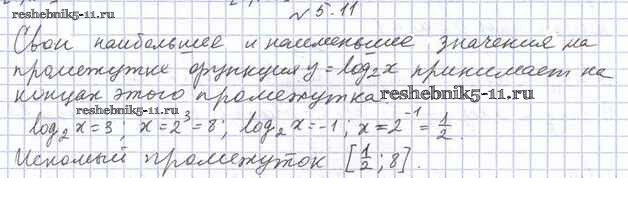 reshebnik5-11.ru
№ 5.11
Свои наибольшее и наименьшее значения на
промежутке функция y = log₂x принимает на
концах этого промежутка. reshebnik5-11.ru
reshebnik5-11.ru
log₂x = 3; x = 2³ = 8; log₂x = -1; x = 2⁻¹ = 1/2.
Искомый промежуток [1/2; 8].